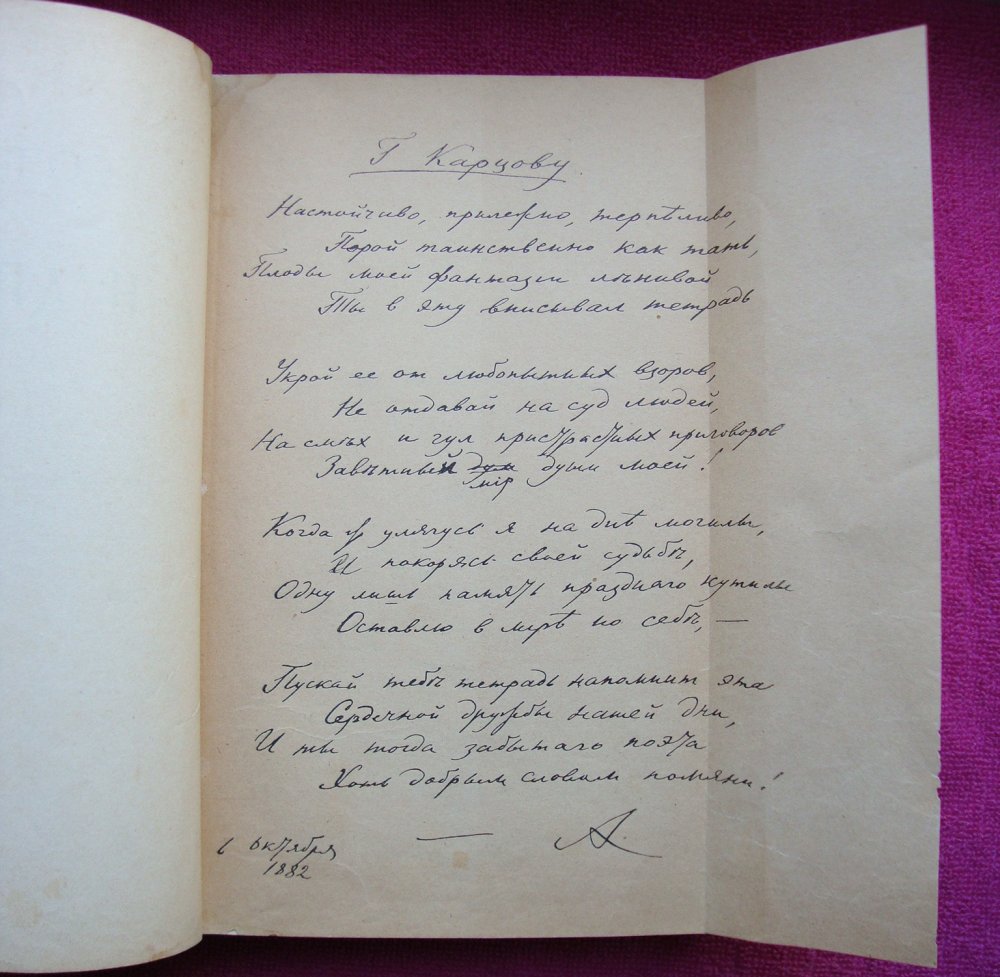 Г Карцову
Настойчиво, прилежно, терпѣливо,
Порой таинственно как тать,
Плоды моей фантазіи лѣнивой
Ты в эту вписывал тетрадь
Укрой ее от любопытных взоров,
Не отдавай на суд людей,
На смѣх и гул пристрастных приговоров
Завѣтный мір души моей!
Когда ж улягусь я на днѣ могилы,
И покорясь своей судьбѣ,
Одну лишь память празднаго кутилы
Оставлю в мірѣ по себѣ, —
Пускай тебѣ тетрадь напомнит эта
Сердечной дружбы нашей дни,
И ты тогда забытаго поэта
Хоть добрым словом помяни!
— А.
6 октября
1882